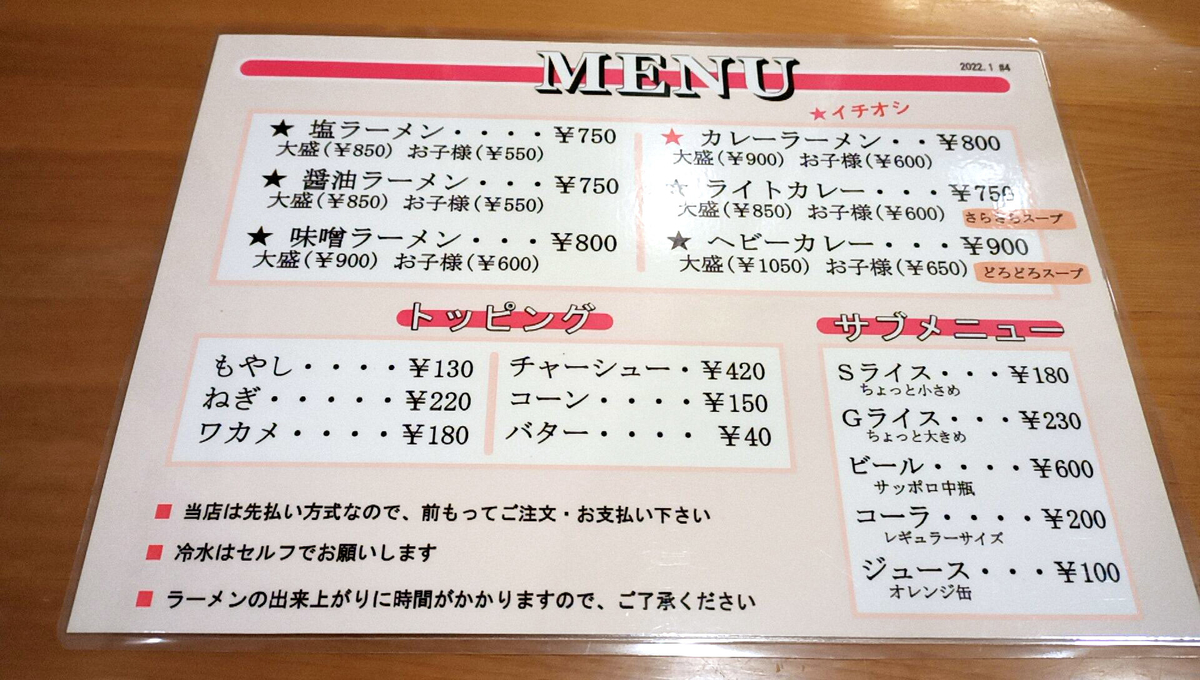 MENU
2022.1 #4
★イチオシ
★ 塩ラーメン・・・・¥750
大盛(¥850) お子様(¥550)
★ 醤油ラーメン・・・¥750
大盛(¥850) お子様(¥550)
★ 味噌ラーメン・・・¥800
大盛(¥900) お子様(¥600)
★ カレーラーメン・・¥800
大盛(¥900) お子様(¥600)
★ ライトカレー・・・¥750
大盛(¥850) お子様(¥600) さらさらスープ
★ ヘビーカレー・・・¥900
大盛(¥1050) お子様(¥650) どろどろスープ
トッピング
もやし・・・・¥130
ねぎ・・・・・¥220
ワカメ・・・・¥180
チャーシュー・¥420
コーン・・・・¥150
バター・・・・ ¥40
サブメニュー
Sライス・・・¥180
ちょっと小さめ
Gライス・・・¥230
ちょっと大きめ
ビール・・・・¥600
サッポロ中瓶
コーラ・・・・¥200
レギュラーサイズ
ジュース・・・¥100
オレンジ缶
■ 当店は先払い方式なので、前もってご注文・お支払い下さい
■ 冷水はセルフでお願いします
■ ラーメンの出来上がりに時間がかかりますので、ご了承ください